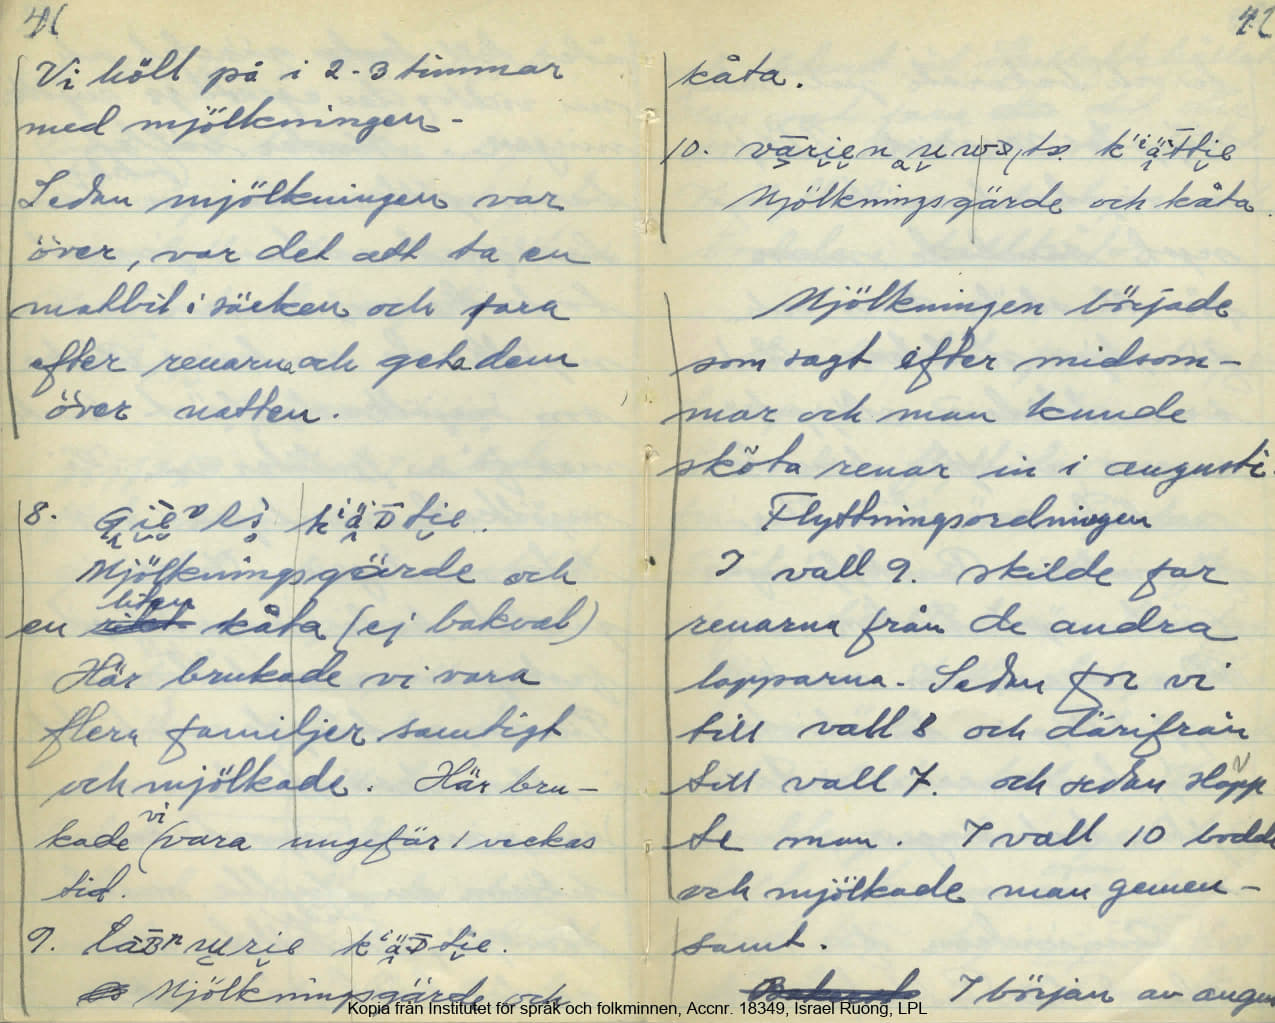 41
Vi höll på i 2-3 timmar
med mjölkningen.
Sedan mjölkningen var
över, var det att ta en
matbit i säcken och fara
efter renarna och geta dem
över natten.
8.
Mjölkningsgärde och
liten
en kåta (ej bakval)
Här brukade vi vara
flera familjer samtigt
och mjölkade. Här bru-
vi
kade vara ungefär 1 veckas
tid.
9.
Mjölkningsgärde och
42
kåta.
10.
Mjölkningsgärde och kåta.
Mjölkningen började
som sagt efter midsom-
mar och man kunde
sköta renar in i augusti
Flyttningsordningen
I vall 9. skilde
renarna från de andra
lapparna. Sedan for vi
till vall 8 och därifrån
till vall 7. och sedan
man. I vall 10 bodde
och mjölkade man gemen-
samt.
I början av
Kopia från Institutet för språk och folkminnen, Accnr. 18349, Israel Ruong, LPL